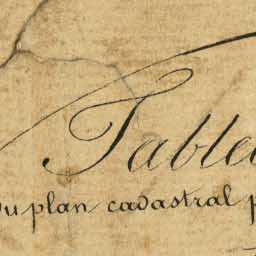 Table
Du plan cadastral p